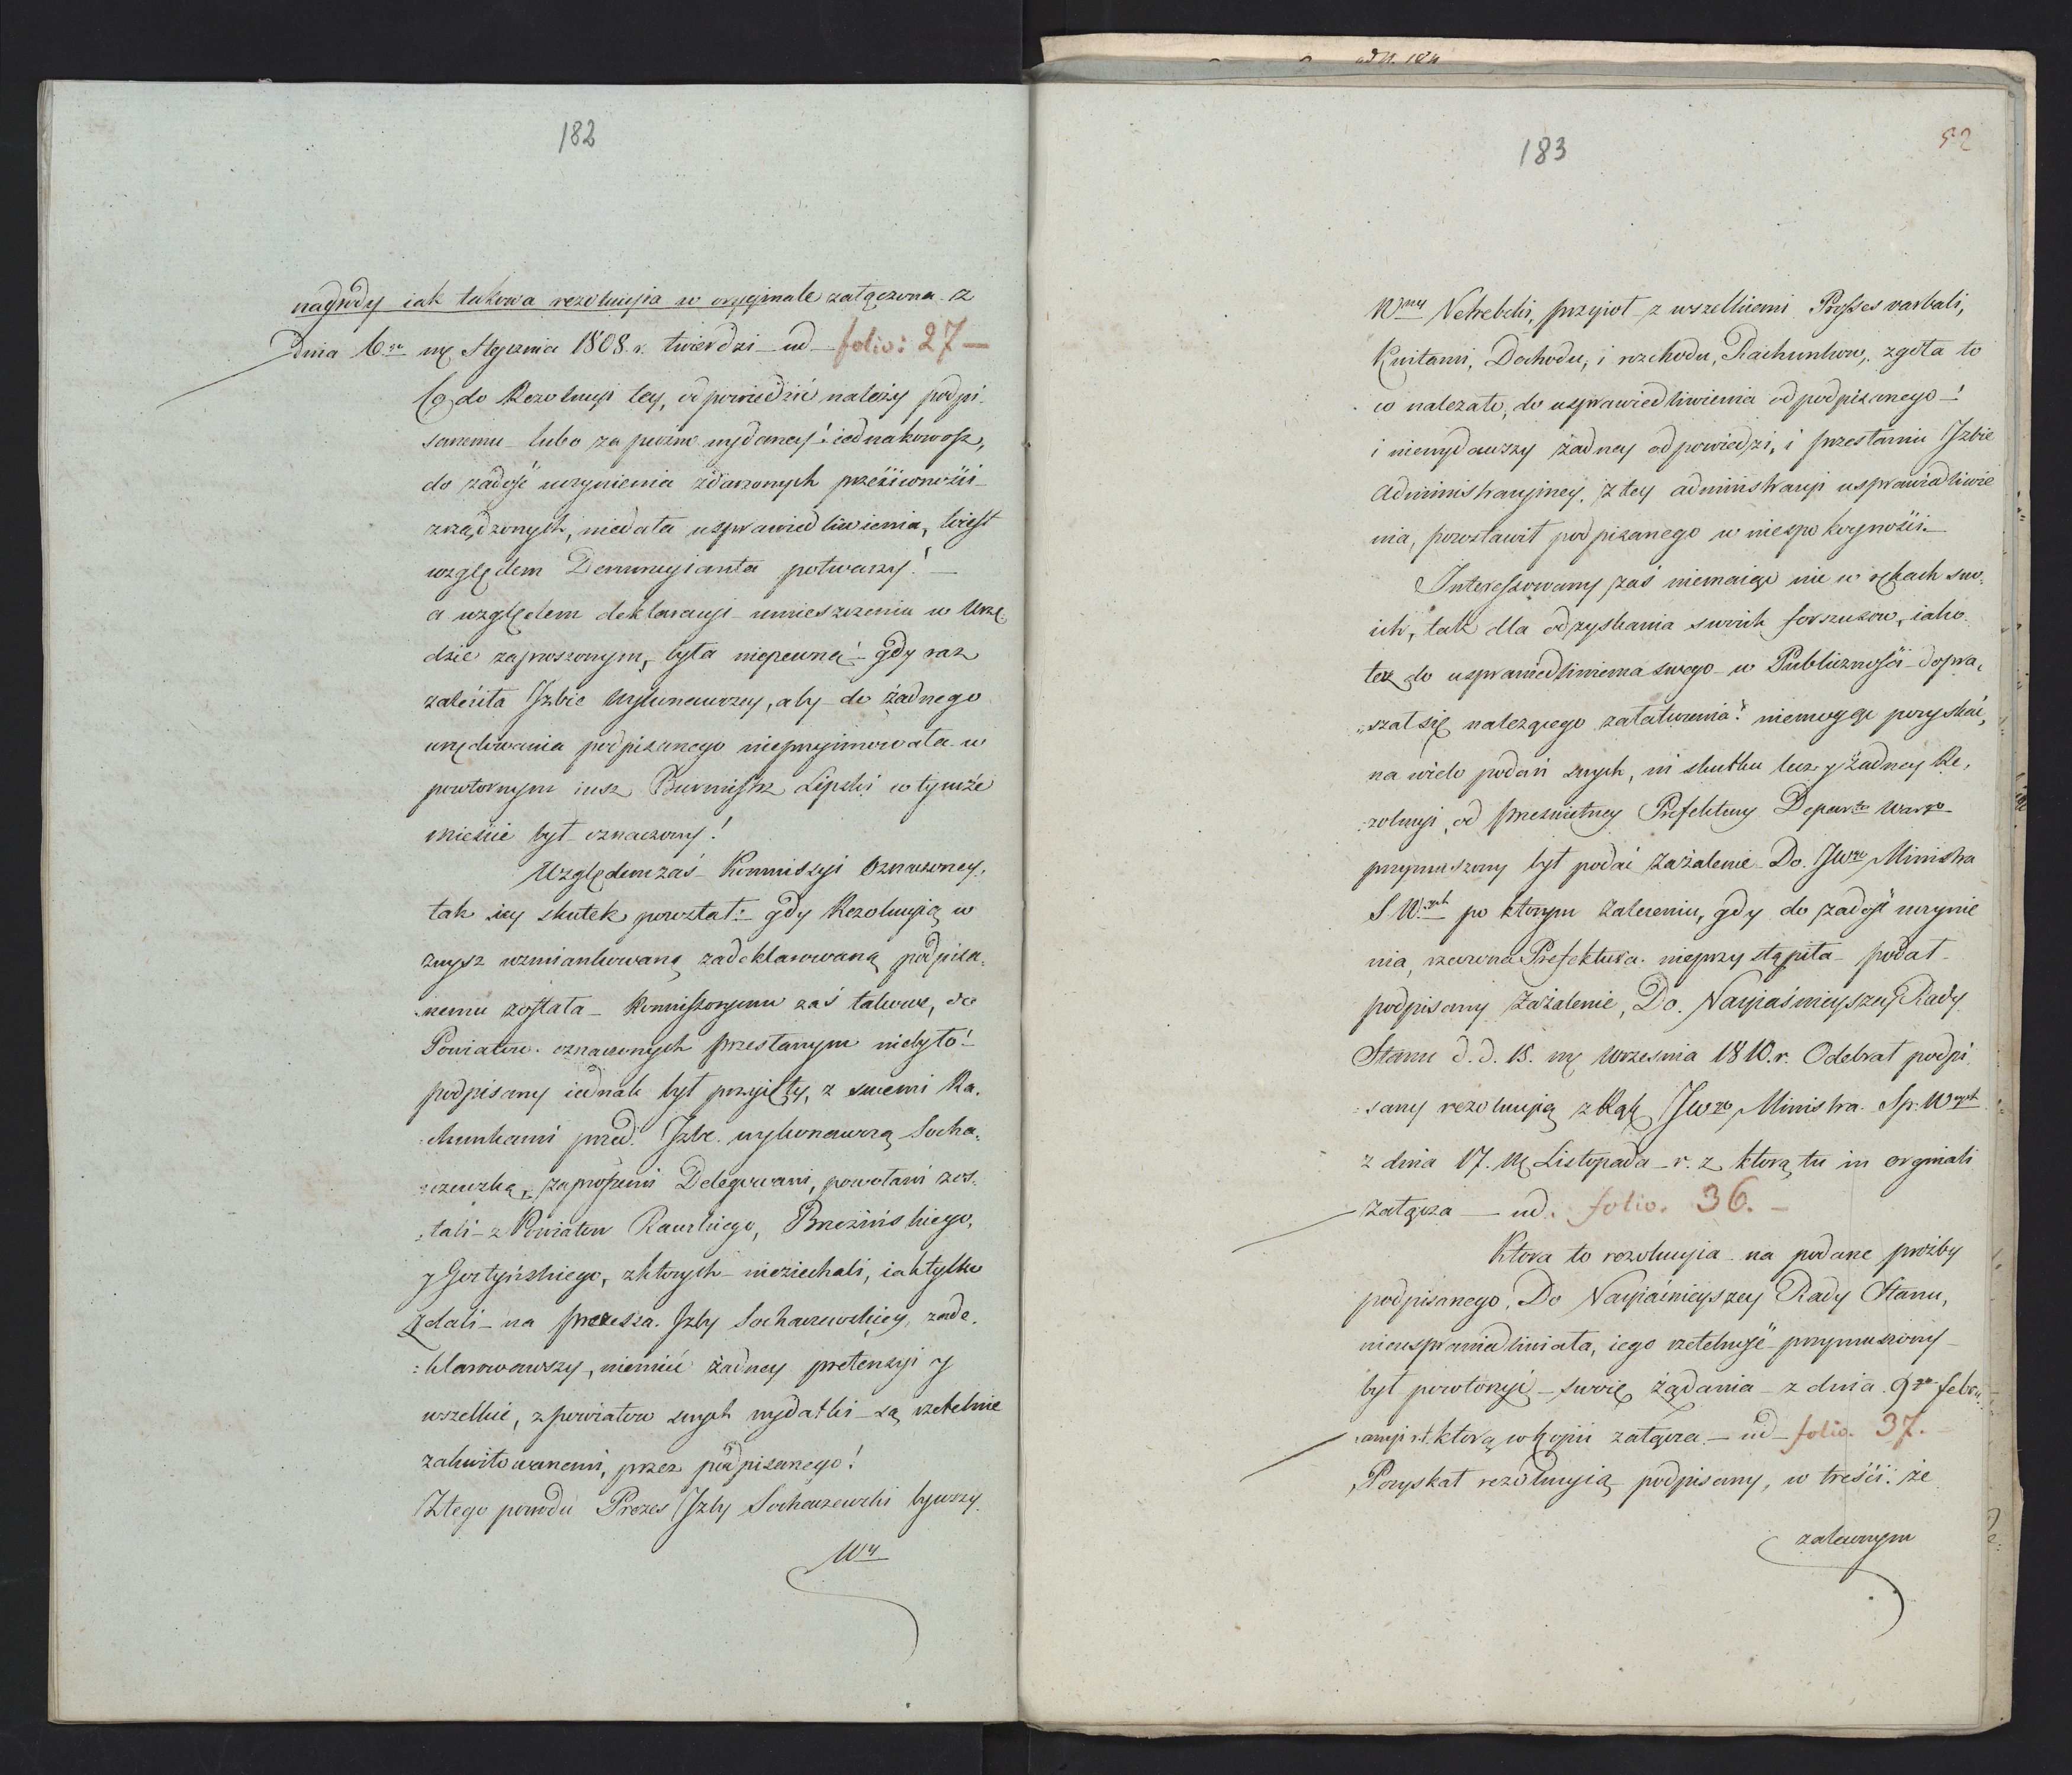 182
nagrody iak takowa rezolucyia w oryginale załączona z
Dnia 6go mca Stycznia 1808. r. twierdzi ud folio: 27 —
Co do Rezolucyi tey, odpowiedzić należy podpi-
sanemu lubo za puźno wydaney! iednakowosz,
do zadość uczynienia zdarzonych przeciwności
zrządzonych, niedała usprawiedliwienia, tiest
względem Denuncyianta potwarzy! —
a względem deklaracyi umieszczenia w Urzę-
dzie zaproszonym, była niepewną! gdy raz
zaleciła Izbie Wykonawczey, aby do żadnego
urzędowania podpisanego nieprzyimowała w
powtornym iusz Burmistrz Lipski w tymże
mieście był oznaczony!
Względem zaś Kommissyi Oznaczoney,
tak iey skutek powstał: gdy Rezolucyią w
zwysz wzmiankowaną zadeklarowaną podpisa-
nemu została Kommissoryum zaś takowe, do
Powiatow oznaczonych przesłanym niebyło!
podpisany iednak był przyięty, z swemi Ra-
:chunkami przed Izbe wykonawczą Socha-
:czewską, zaproszeni Delegowani, powołani zos-
:tali z Powiatow Rawskiego, Brezińskiego,
y Gostyńskiego, z ktorych nieziechali, iak tylko
zdali na Prezesa Izby Sochaczewskiey, zade-
:klarowawszy, niemieć żadney pretensyi y
wszelkie, z powiatow swych wydatki są rzetelnie
zakwitowanemi, przez podpisanego!
Z tego powodu Prezes Izby Sochaczewski bywszy
Wy
183
52
Wmy Netrebski, przyioł z wszelkiemi Prosses varbali,
Kwitami, Dochodu, i rozchodu, Rachunkow, zgoła to
co należało, do usprawiedliwienia od podpisanego !
i niewydawszy żadney odpowiedzi, i przesłaniu Izbie
administracyiney, z tey administracyi usprawiedliwie
nia, pozostawił podpisanego w niespokoyności.
Interessowany zaś niemaiąc nic w rękach swo-
ich, tak dla odzyskania swoich forszusow, iako
tez do usprawiedliwienia swego w Publiczności dopra-
„szał się należącego załatwienia! niemogąc pozyskać,
na wiele podań swych, ni skutku lecz y żadney Re-
zolucyi, od Prześwietney Prefektury Departo Warso
przymuszony był podać Zażalenie Do JWgo Ministra
S. Wych po ktorym zaleceniu, gdy do zadość uczynie
nia, rzeczona Prefektura nieprzystąpiła podał
podpisany Zażalenie, Do Nayiaśnieyszey Rady
Stanu d. d. 15. mca Wrzesnia 1810. r. Odebrał podpi
:sany rezolucyią z Rąk JWgo Ministra Sp: Wnych
z dnia 17. Mca Listopada r. z ktorą tu in orginali
załącza — ud. folio. 36. —
Ktora to rezolucyia na podane prozby
podpisanego, Do Nayiaśnieyszey Rady Stanu,
nieusprawiedliwiała, iego rzetelność przymuszony
był powtorzyć swoię żądania z dnia 9go febru
:aryi r. t. ktorą w kopii załącza — ud folio. 37. —
Pozyskał rezolucyią podpisany, w treści: że
zalecnym